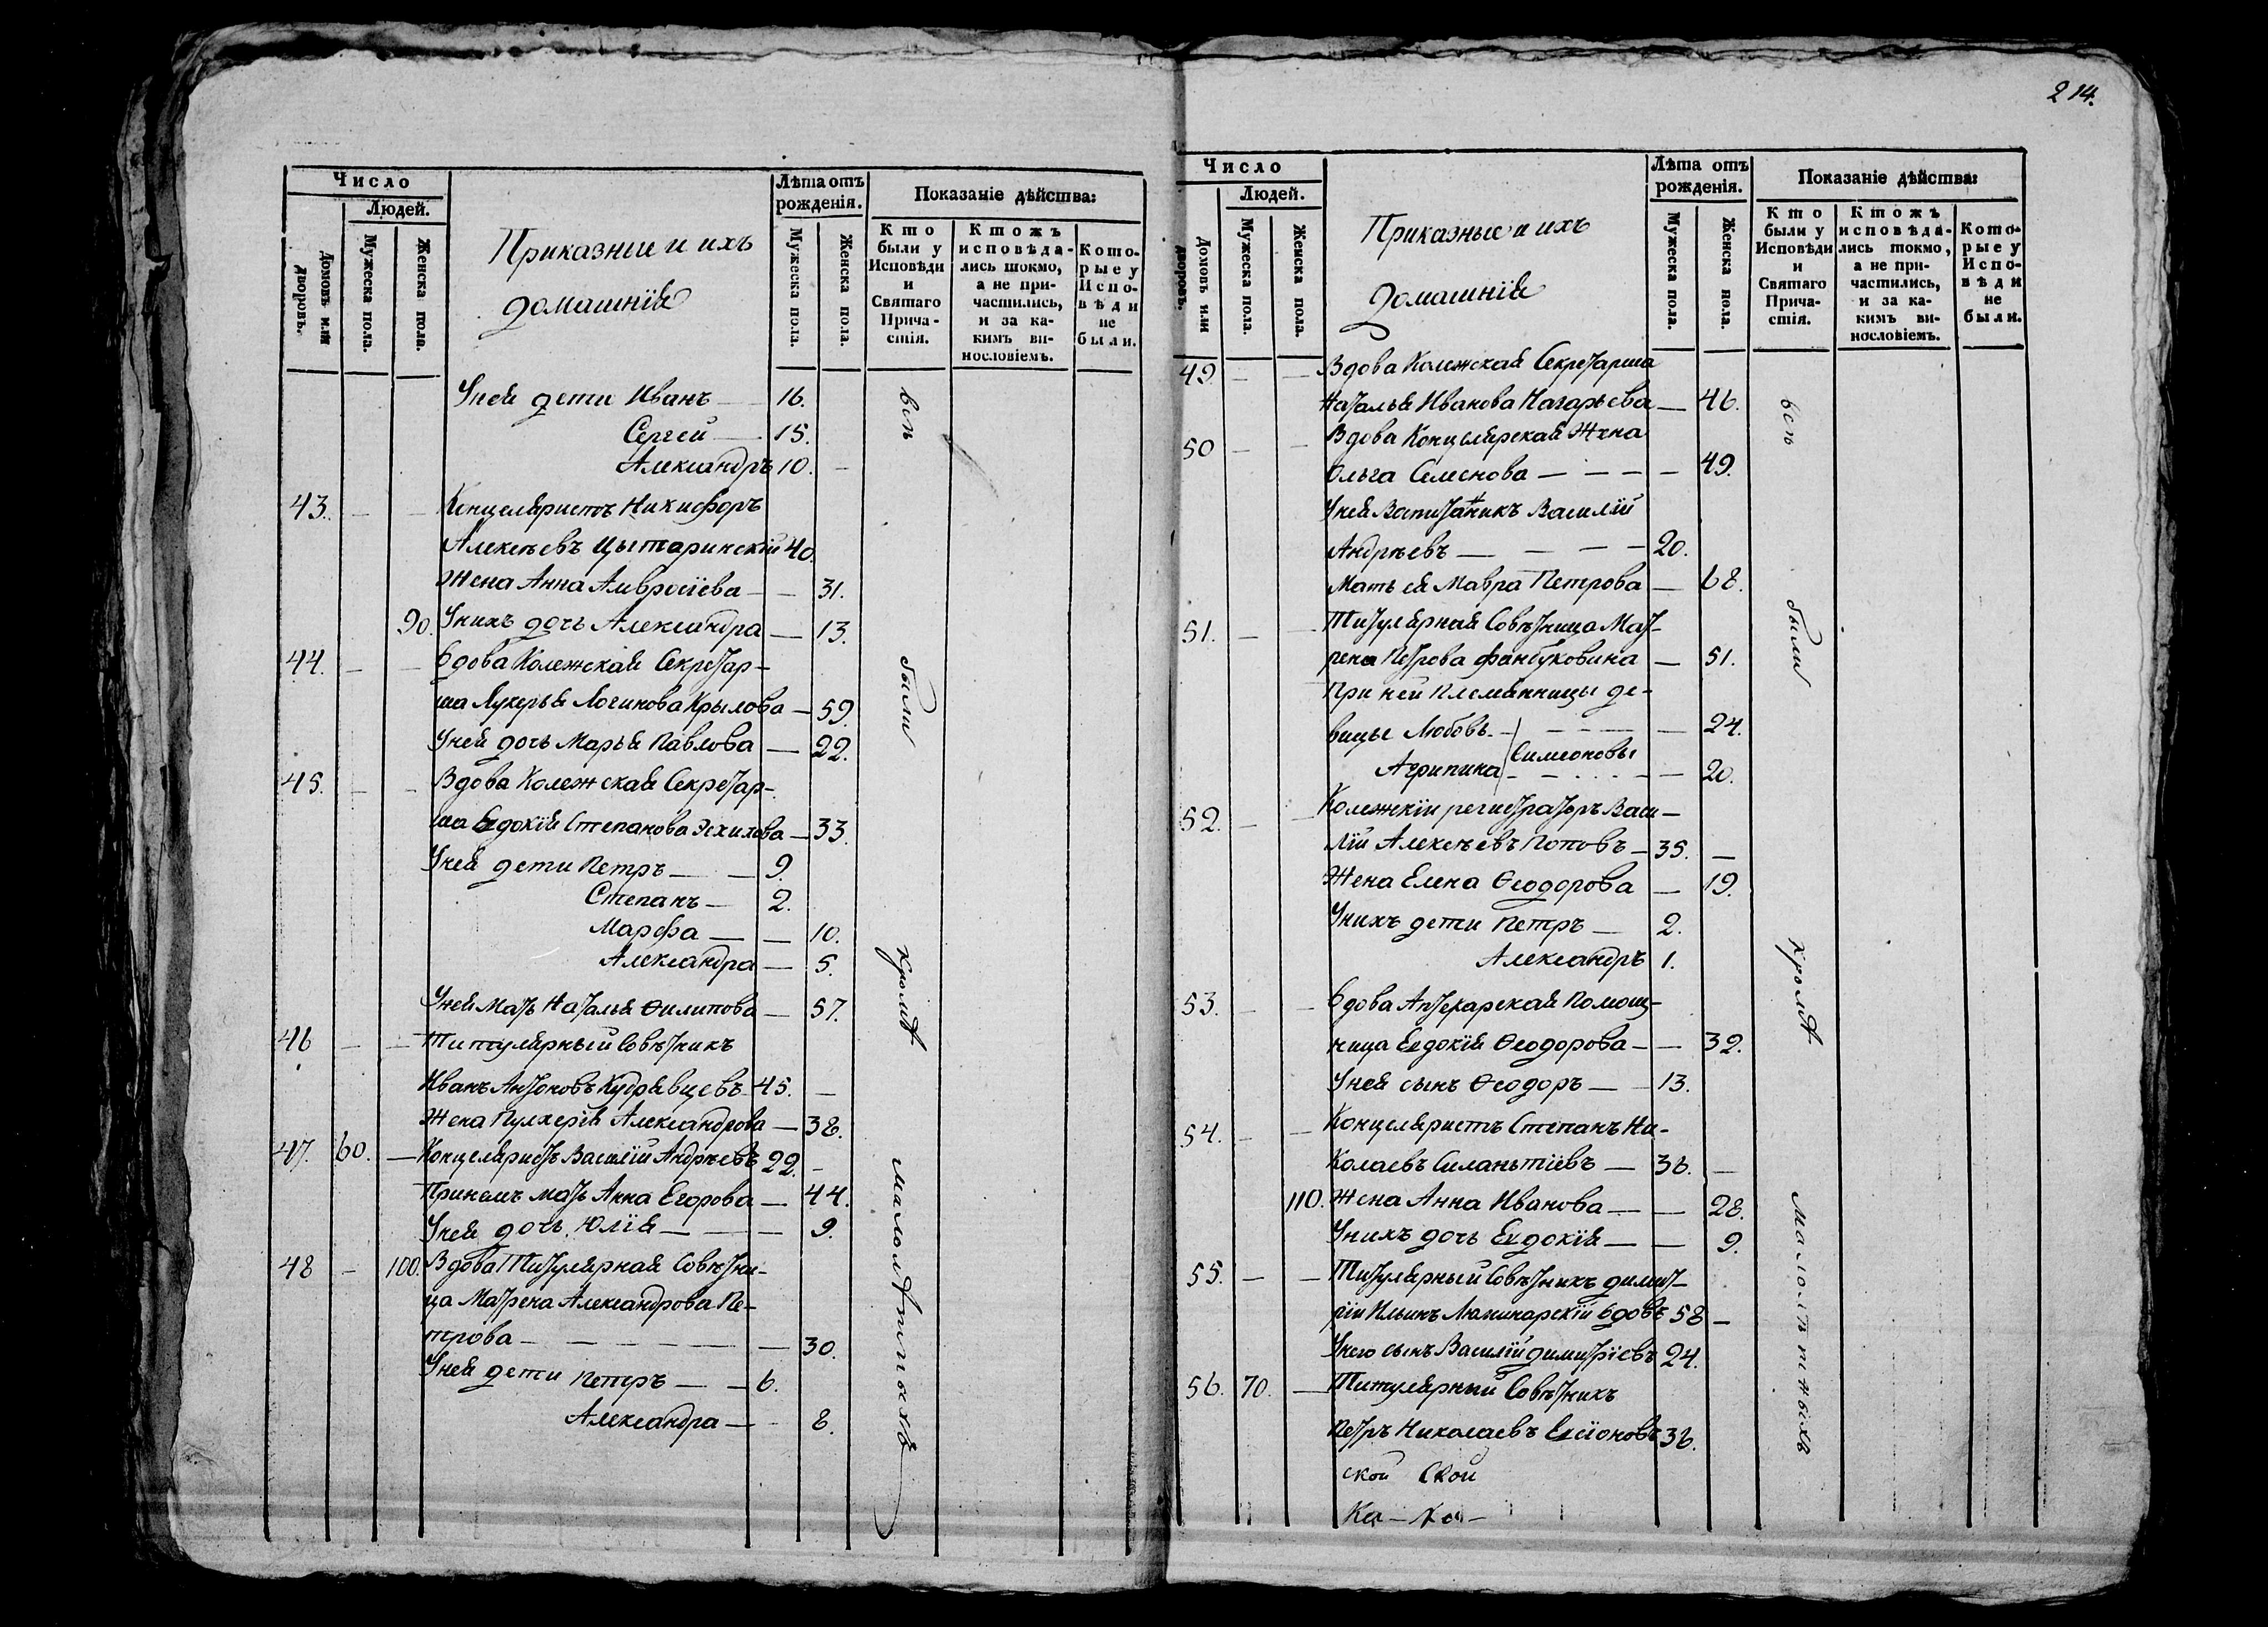 Число
Людей.
Домовъ или дворовъ.
Мужеска пола.
Женска пола.
Приказные и ихъ
домашнія
Лѣта отъ
рожденія.
Мужеска пола.
Женска пола.
Показаніе дѣйства:
Кто
были у
Исповѣди
и
Святаго
Прича-
стія.
Ктожъ
исповѣда-
лись токмо,
а не при-
частились,
и за ка-
кимъ ви-
нословіемъ.
Кото-
рые у
Испо-
вѣди
не
были.
Уней дети Иванъ — 16.
Сергей — 15.
Александръ 10. —
43. — — Концеляристъ Никифоръ
Алексѣевъ Цытаринскій 40.
Жена Анна Амвросіева — — 31.
90. Унихъ дочь Александра — 13.
44. — — Вдова Колежская Секретар-
ша Лукерья Логинова Крылова — 59.
Уней дочь Марья Павлова — 22.
45. — — Вдова Колежская Секретар-
ша Евдокія Степанова Эсхилова — 33.
Уней дети Петръ — — 9.
Степанъ — 2.
Марфа — — 10.
Александра — 5.
Уней мать Наталья Филипова — 57.
46 — — Титулярный Совѣтникъ
Иванъ Антоновъ Кудрявцевъ 45. —
Жена Пулхерія Александрова — 38.
47. 60. — Концеляристъ Василій Андрѣевъ 22. —
Принемъ мать Анна Егорова — 44.
Уней дочь Юлія — — — 9.
48 — 100. Вдова Титулярная Совѣтни-
ца Матрена Александрова Пе-
трова — — — — — — 30.
Уней дети Петръ — — 6.
Александра — — 8.
всѣ были кромѣ малолѣтныхъ
214.
Число
Людей.
Домовъ или дворовъ.
Мужеска пола.
Женска пола.
Приказные и ихъ
домашнія
Лѣта отъ
рожденія.
Мужеска пола.
Женска пола.
Показаніе дѣйства:
Кто
были у
Исповѣди
и
Святаго
Прича-
стія.
Ктожъ
исповѣда-
лись токмо,
а не при-
частились,
и за ка-
кимъ ви-
нословіемъ.
Кото-
рые у
Испо-
вѣди
не
были.
49. — — Вдова Колежская Секретарша
Наталья Иванова — 46.
50 — — Вдова Концелярская Жена
Ольга Семенова — — — — 49.
Уней Василій
Андрѣевъ — — — — 20.
Мать ея Мавра Петрова — 68.
51. — — Титулярная Совѣтница Мат-
рена Петрова Фанбуковина — 51.
При ней Племянницы де-
вицы Любовь — — — — — 24.
Симеоновы
Агрипина — — — — — 20.
52. — — Колежкіи регистраторъ Васи-
лій Алексѣевъ Поповъ — 35. —
Жена Елена Ѳеодорова — 19.
Унихъ дети Петръ — 2.
Александръ 1.
53. — — Вдова Аптекарская Помощ-
ница Евдокія Ѳеодорова — — 32.
Уней сынъ Ѳеодоръ — — 13.
54. — — Концеляристъ Степанъ Ни-
колаевъ Силаньтіевъ — 36. —
110. Жена Анна Иванова — — 28.
Унихъ дочь Евдокія — — 9.
55. — — Титулярный Совѣтникъ димит-
рій Ильинъ Люминарскій вдовъ 58 —
Унего сынъ Василій димитріевъ 24.
56. 70. — Титулярный Совѣтникъ
Петръ Николаевъ 36.
ской Ской
Ка-
всѣ были кромѣ малолѣтныхъ